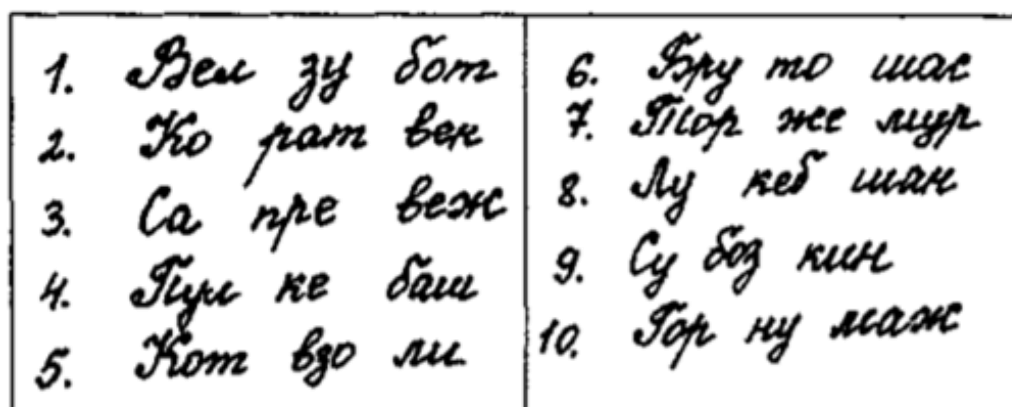 1. Вел зу бот
2. Ко рат век
3. Са пре веж
4. Пул ке баш
5. Кот взо ли
6. Бру то шас
7. Тор же мур
8. Лу кеб шан
9. Су боз кин
10. Гор ну маж